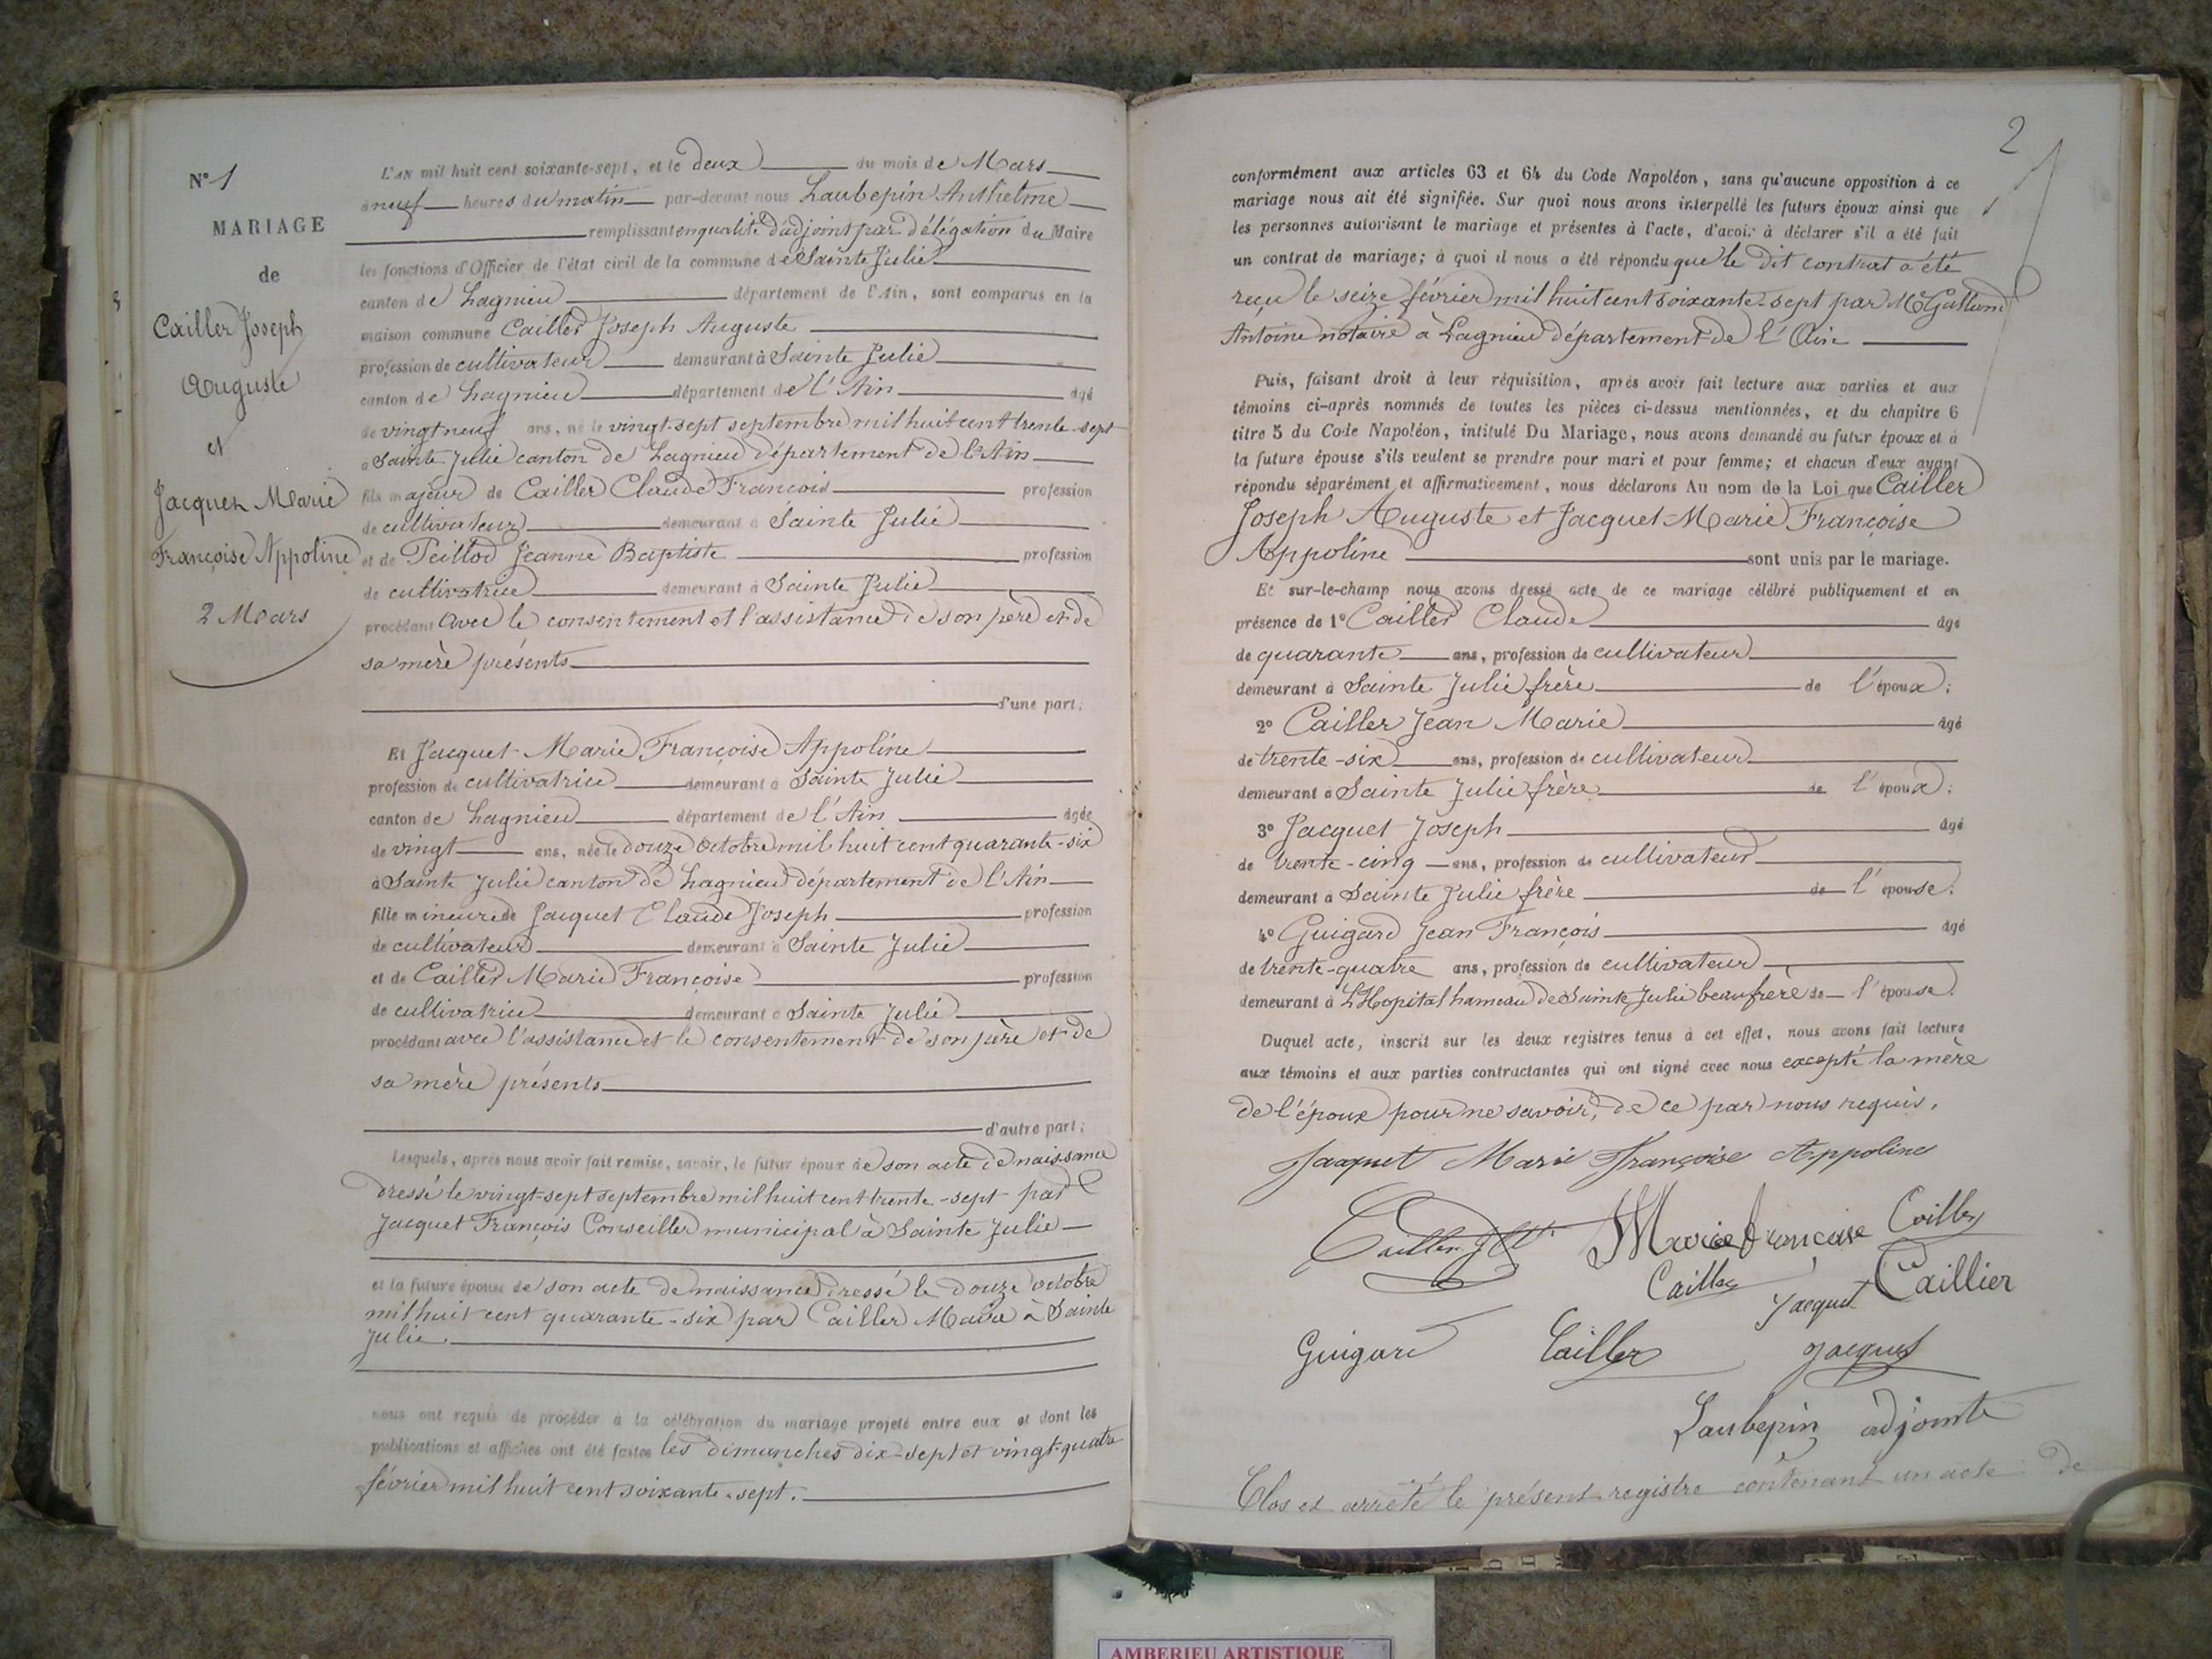 N° 1
MARIAGE
de
Cailler Joseph
Auguste
et
Jacquet Marie
Françoise Appoline
2 Mars
L'AN mil huit cent soixante-sept, et le deux du mois de Mars
à neuf heures du matin par-devant nous Laubepin Anthelme
remplissant en qualité d'adjoint par délégation du Maire
les fonctions d'Officier de l'état civil de la commune de Sainte Julie
canton de Lagnieu département de l'Ain, sont comparus en la
maison commune Cailler Joseph Auguste
profession de cultivateur demeurant à Sainte Julie
canton de Lagnieu département de l'Ain âgé
de vingt neuf ans, né le vingt-sept septembre mil huit cent trente-sept
à Sainte Julie canton de Lagnieu département de l'Ain
fils majeur de Cailler Claude François profession
de cultivateur demeurant à Sainte Julie
et de Peillod Jeanne Baptiste profession
de cultivatrice demeurant à Sainte Julie
procédant avec le consentement et l'assistance de son père et de
sa mère présents
d'une part;
Et Jacquet Marie Françoise Appoline
profession de cultivatrice demeurant à Sainte Julie
canton de Lagnieu département de l'Ain âgée
de vingt ans, née le douze Octobre mil huit cent quarante-six
à Sainte Julie canton de Lagnieu département de l'Ain
fille mineure de Jacquet Claude Joseph profession
de cultivateur demeurant à Sainte Julie
et de Cailler Marie Françoise profession
de cultivatrice demeurant à Sainte Julie
procédant avec l'assistance et le consentement de son père et de
sa mère présents
d'autre part;
Lesquels, après nous avoir fait remise, savoir, le futur époux de son acte de naissance
dressé le vingt-sept septembre mil huit cent trente-sept par
Jacquet François Conseiller municipal à Sainte Julie
et la future épouse de son acte de naissance dressé le douze octobre
mil huit cent quarante-six par Cailler Maire à Sainte
Julie.
nous ont requis de procéder à la célébration du mariage projeté entre eux et dont les
publications et affiches ont été faites les dimanches dix-sept et vingt-quatre
février mil huit cent soixante-sept.
2
conformément aux articles 63 et 64 du Code Napoléon, sans qu'aucune opposition à ce
mariage nous ait été signifiée. Sur quoi nous avons interpellé les futurs époux ainsi que
les personnes autorisant le mariage et présentes à l'acte, d'avoir à déclarer s'il a été fait
un contrat de mariage; à quoi il nous a été répondu que le dit contrat a été
reçu le seize février mil huit cent soixante-sept par Me Galland
Antoine notaire à Lagnieu département de l'Ain
Puis, faisant droit à leur réquisition, après avoir fait lecture aux parties et aux
témoins ci-après nommés de toutes les pièces ci-dessus mentionnées, et du chapitre 6
titre 5 du Code Napoléon, intitulé Du Mariage, nous avons demandé au futur époux et à
la future épouse s'ils veulent se prendre pour mari et pour femme; et chacun d'eux ayant
répondu séparément et affirmativement, nous déclarons Au nom de la Loi que Cailler
Joseph Auguste et Jacquet Marie Françoise
Appoline sont unis par le mariage.
Et sur-le-champ nous avons dressé acte de ce mariage célébré publiquement et en
présence de 1° Cailler Claude âgé
de quarante ans, profession de cultivateur
demeurant à Sainte Julie frère de l'époux;
2° Cailler Jean Marie âgé
de trente-six ans, profession de cultivateur
demeurant à Sainte Julie frère de l'époux;
3° Jacquet Joseph âgé
de trente-cinq ans, profession de cultivateur
demeurant à Sainte Julie frère de l'épouse.
4° Guigard Jean François âgé
de trente-quatre ans, profession de cultivateur
demeurant à L'Hopital hameau de Sainte Julie beau frère de l'épouse.
Duquel acte, inscrit sur les deux registres tenus à cet effet, nous avons fait lecture
aux témoins et aux parties contractantes qui ont signé avec nous excepté la mère
de l'époux pour ne savoir, de ce par nous requis.
Jacquet Marie Françoise Appoline
Cailler Marie françoise Cailler
Cailler Jacquet Caillier
Guigard Cailler Jacquet
Laubepin adjoint
Clos et arrêté le présent registre contenant un acte de
AMBERIEU ARTISTIQUE